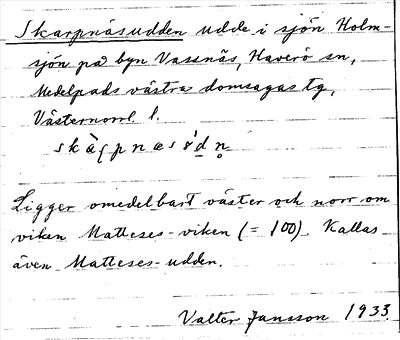 Skarpnäsudden udde i sjön Holm-
sjön på byn Vassnäs, Haverö sn,
Medelpads västra domsagas tg,
Västernorrl l.
Ligger omedelbart väster och norr om
viken Matteses-viken (= 100). Kallas
även Matteses-udden.
Valter Jansson 1933